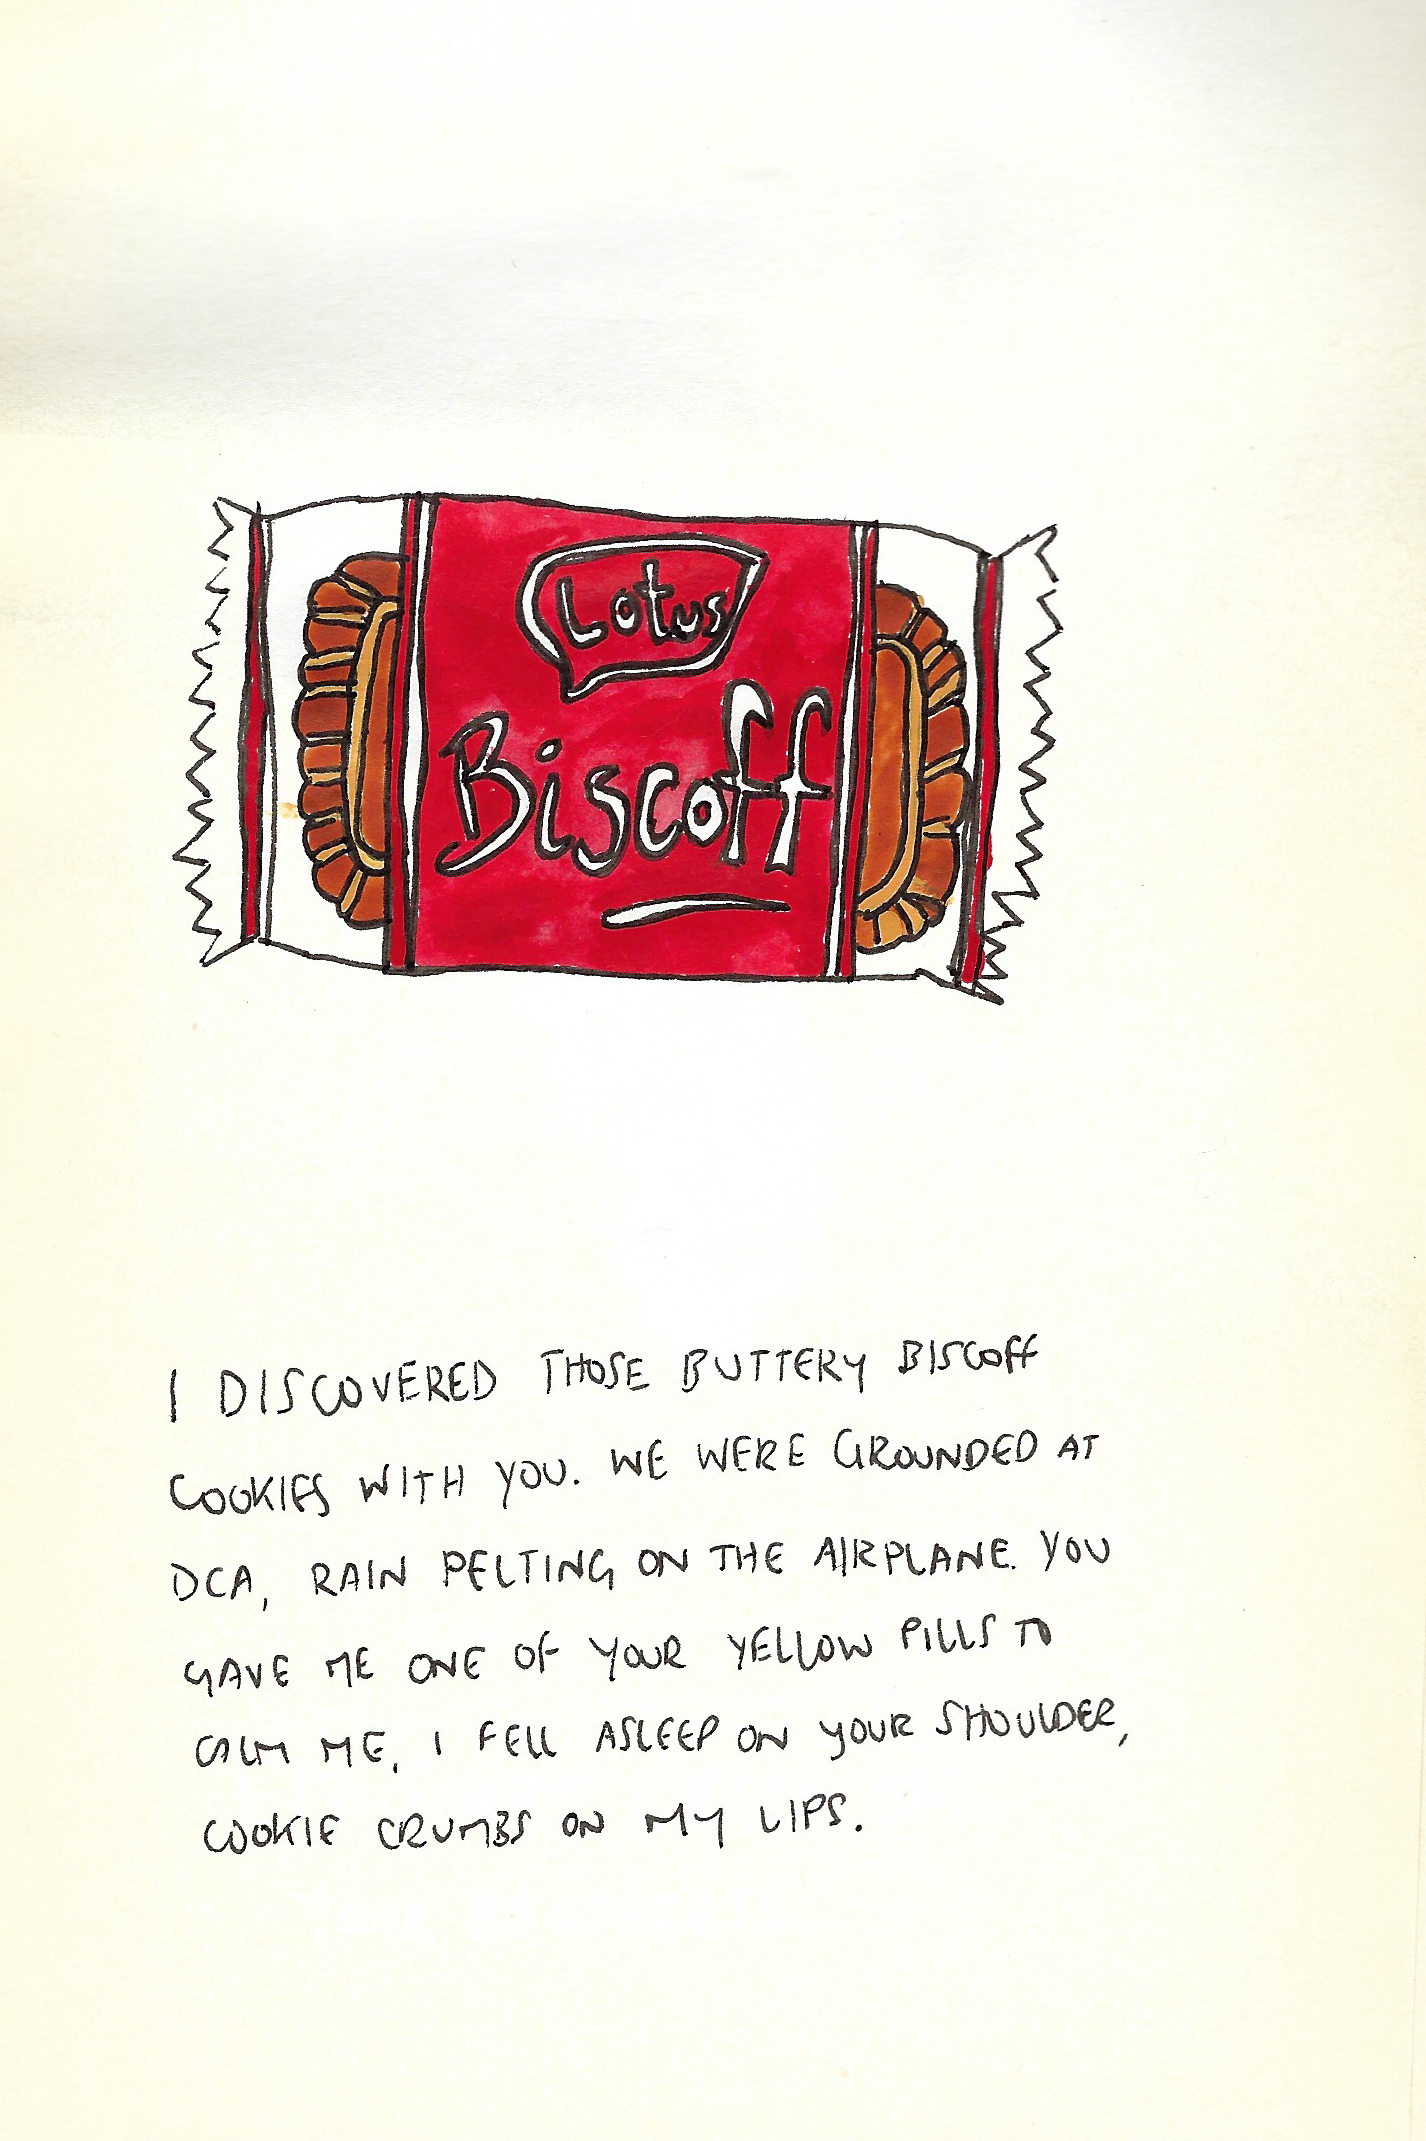 Lotus
Biscoff
I DISCOVERED THOSE BUTTERY BISCOFF
COOKIES WITH YOU. WE WERE GROUNDED AT
DCA, RAIN PELTING ON THE AIRPLANE. YOU
GAVE ME ONE OF YOUR YELLOW PILLS TO
CALM ME. I FELL ASLEEP ON YOUR SHOULDER,
COOKIE CRUMBS ON MY LIPS.